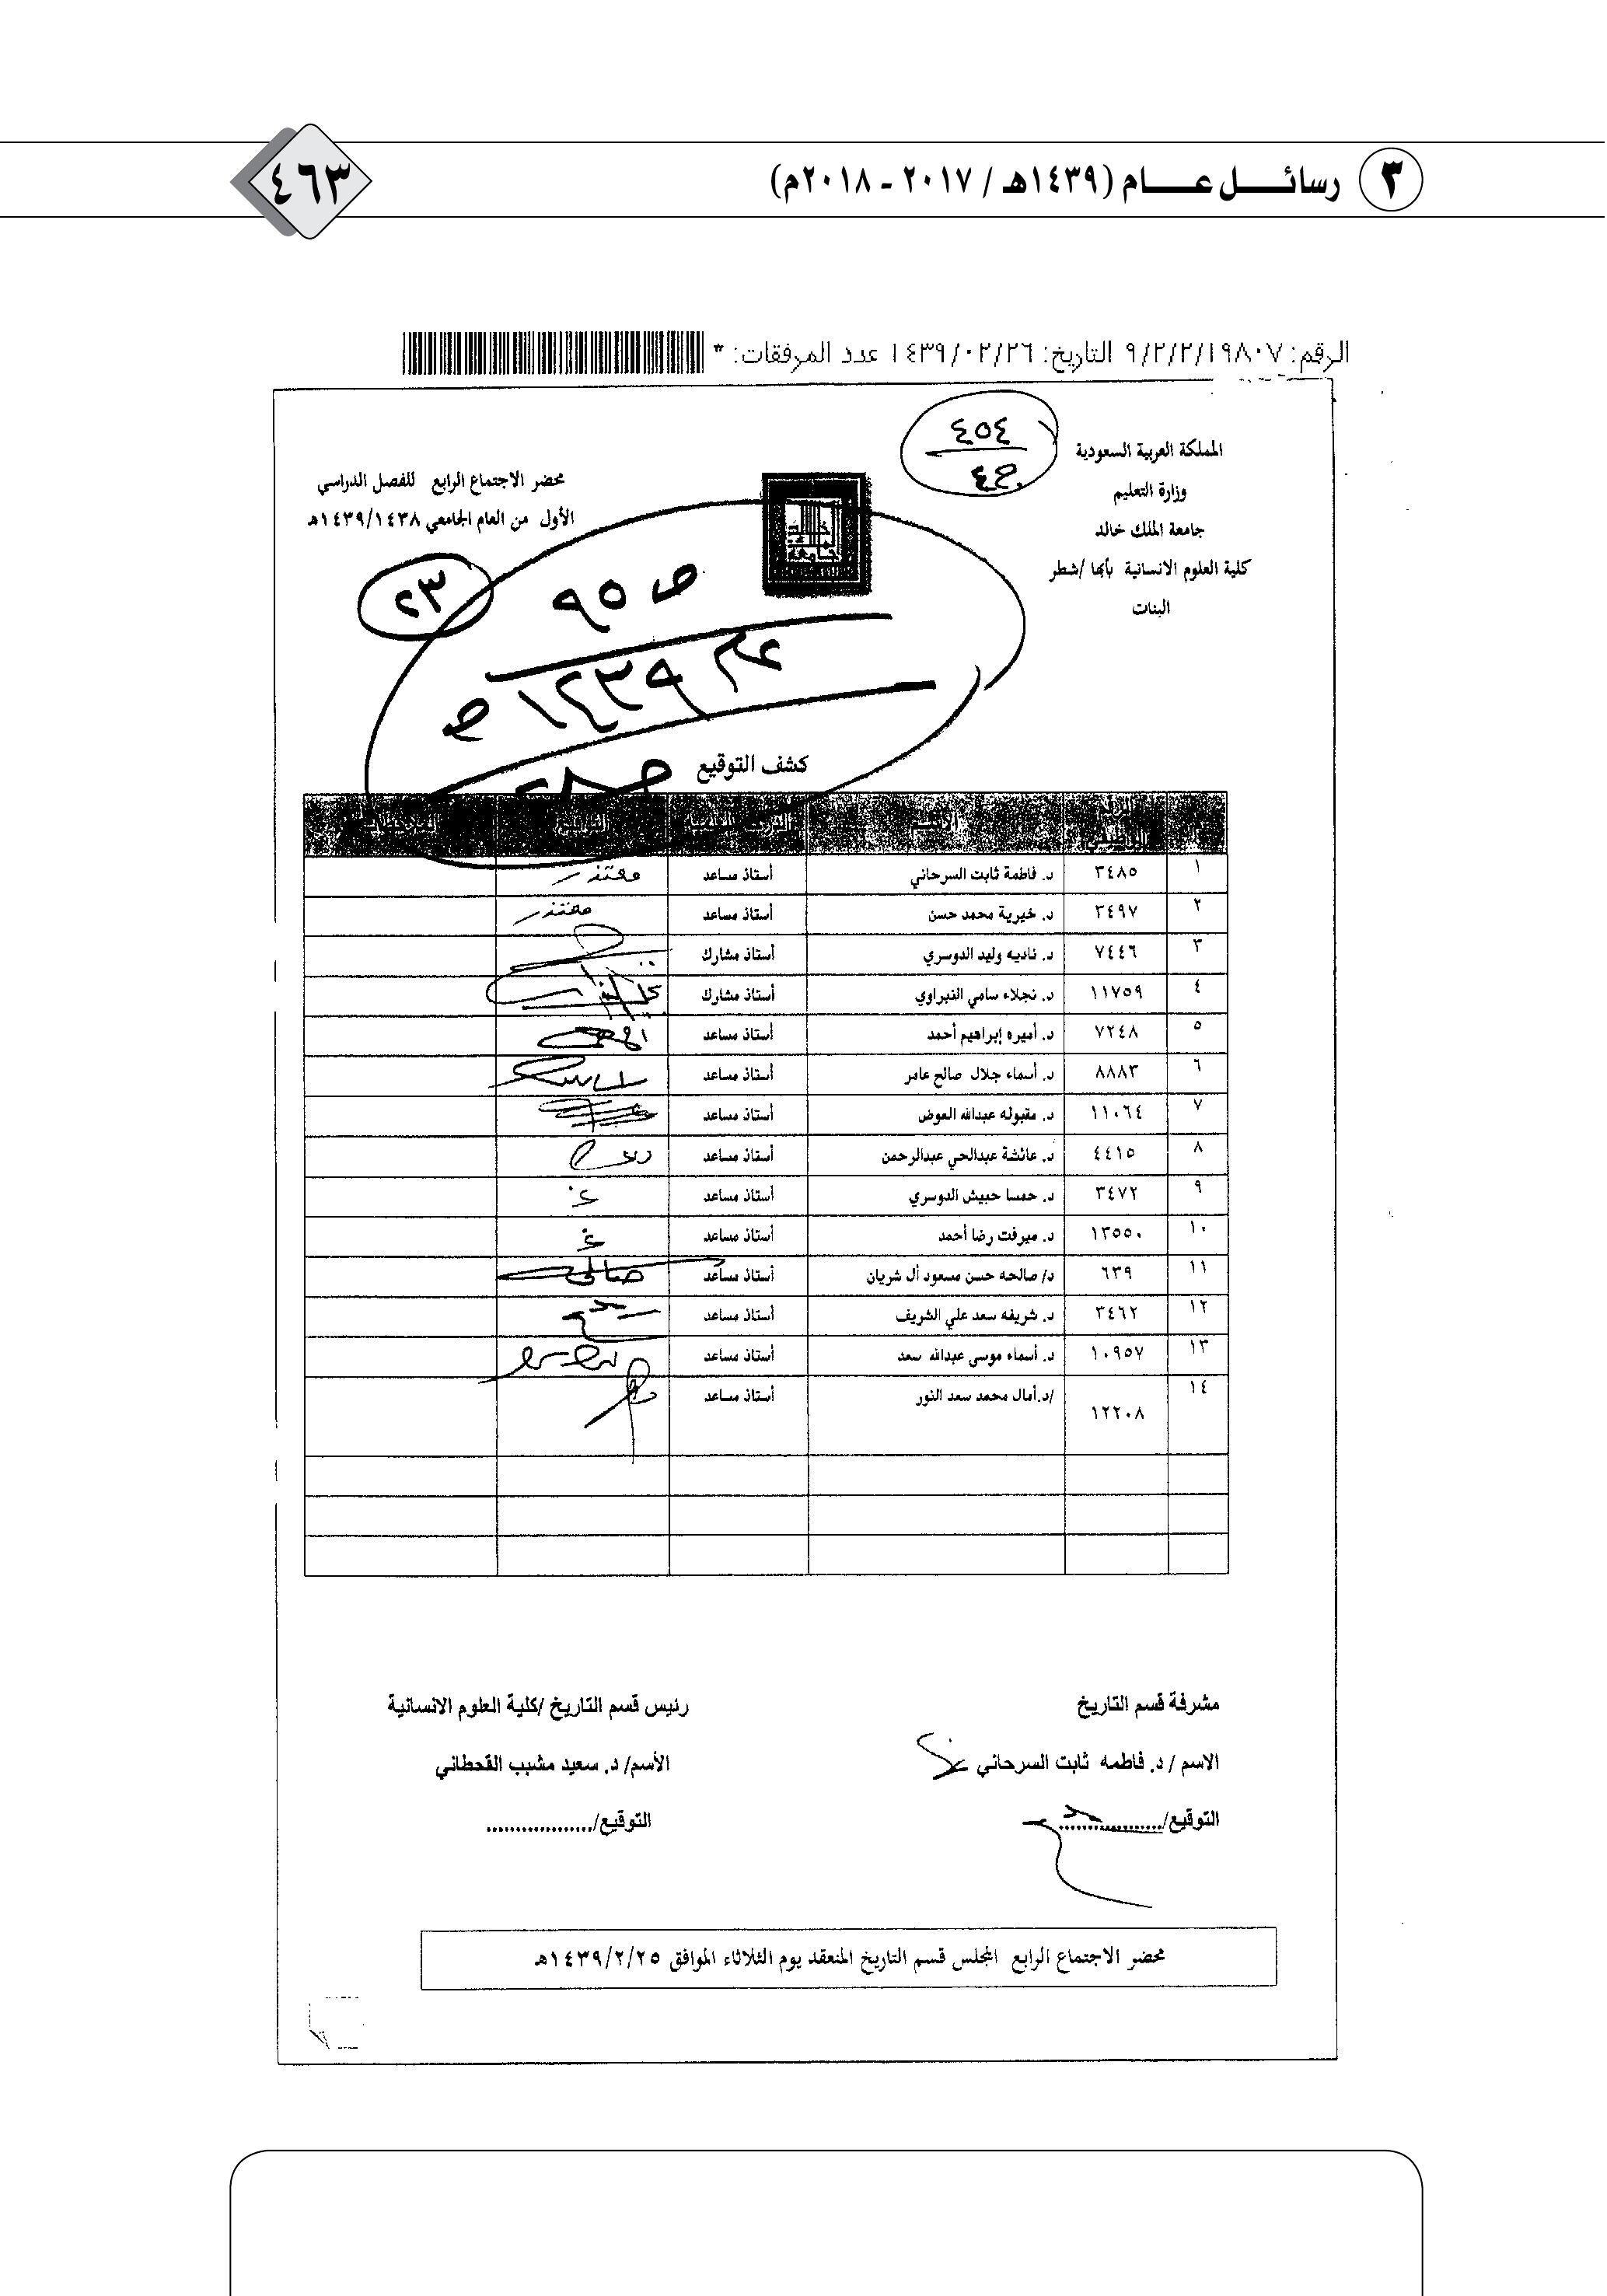 ٣ رسائل عام (١٤٣٩هـ / ٢٠١٧ - ٢٠١٨م)
٤٦٣
الرقم: ٩/٢/٢/١٩٨٠٧ التاريخ: ١٤٣٩/٠٢/٢٦ عدد المرفقات: *
٤٥٤
المملكة العربية السعودية
وزارة التعليم
جامعة الملك خالد
كلية العلوم الانسانية بأبها /شطر
البنات
محضر الاجتماع الرابع للفصل الدراسي
الأول من العام الجامعي ١٤٣٩/١٤٣٨هـ
٢٣
ص ٩٥
عام ١٤٣٩ هـ
كشف التوقيع
١ ٣٤٨٥ د. فاطمة ثابت السرحاني أستاذ مساعد معتذر
٢ ٣٤٩٧ د. خيرية محمد حسن أستاذ مساعد معتذر
٣ ٧٤٤٦ د. ناديه وليد الدوسري أستاذ مشارك
٤ ١١٧٥٩ د. نجلاء سامي النبراوي أستاذ مشارك
٥ ٧٢٤٨ د. أميره إبراهيم أحمد أستاذ مساعد
٦ ٨٨٨٣ د. أسماء جلال صالح عامر أستاذ مساعد
٧ ١١٠٦٤ د. مقبوله عبدالله العوض أستاذ مساعد
٨ ٤٤١٥ د. عائشة عبدالحي عبدالرحمن أستاذ مساعد
٩ ٣٤٧٢ د. حمسا حبيش الدوسري أستاذ مساعد غ
١٠ ١٣٥٥٠ د. ميرفت رضا أحمد أستاذ مساعد غ
١١ ٦٣٩ د/ صالحه حسن مسعود أل شريان أستاذ مساعد
١٢ ٣٤٦٢ د. شريفه سعد علي الشريف أستاذ مساعد
١٣ ١٠٩٥٧ د. أسماء موسى عبدالله سعد أستاذ مساعد
١٤ ١٢٢٠٨ /د.أمال محمد سعد النور أستاذ مساعد
مشرفة قسم التاريخ
الاسم / د. فاطمه ثابت السرحاني
التوقيع/..................
رئيس قسم التاريخ /كلية العلوم الانسانية
الأسم/ د. سعيد مشبب القحطاني
التوقيع/..................
محضر الاجتماع الرابع المجلس قسم التاريخ المنعقد يوم الثلاثاء الموافق ١٤٣٩/٢/٢٥هـ